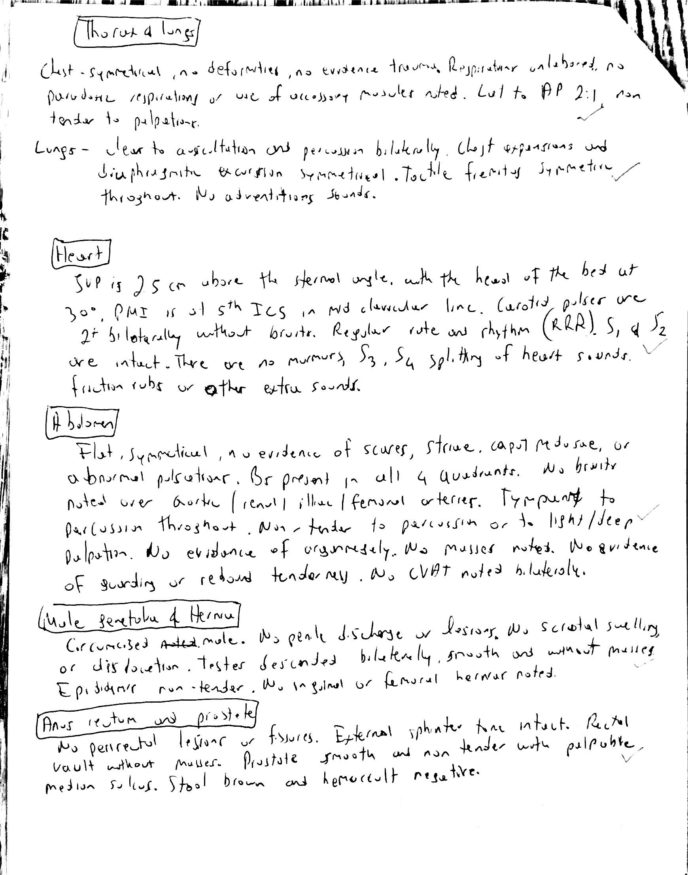 Thorax & lungs
Chest - symmetrical, no deformities, no evidence trauma. Respirations unlabored, no
paradoxic respirations or use of accessory muscles noted. Lat to AP 2:1, non
tender to palpations.
Lungs - clear to auscultation and percussion bilaterally. Chest expansions and
diaphragmatic excursion symmetrical. Tactile fremitus symmetric
throughout. No adventitious sounds.
Heart
JVP is 2.5 cm above the sternal angle, with the head of the bed at
30°. PMI is at 5th ICS in mid clavicular line. Carotid pulses are
2+ bilaterally without bruits. Regular rate and rhythm (RRR). S1 & S2
are intact. There are no murmurs, S3, S4 splitting of heart sounds,
friction rubs or other extra sounds.
Abdomen
Flat, symmetrical, no evidence of scares, striae, caput medusae, or
abnormal pulsations. BS present in all 4 quadrants. No bruits
noted over aortic/renal/illiac/femoral arteries. Tympany to
percussion throughout. Non-tender to percussion or to light/deep
palpation. No evidence of organomegaly. No masses noted. No evidence
of guarding or rebound tenderness. No CVAT noted bilaterally.
Male genetalia & Hernia
Circumcised male. No penile discharge or lesions. No scrotal swelling
or discoloration. Testes descended bilaterally, smooth and without masses.
Epididymis non-tender. No inguinal or femoral hernias noted.
Anus rectum and prostate
No perirectal lesions or fissures. External sphincter tone intact. Rectal
vault without masses. Prostate smooth and non tender with palpable
median sulcus. Stool brown and hemoccult negative.